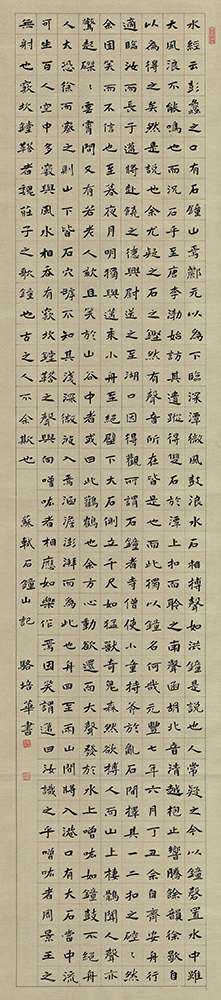 水經云彭蠡之口有石鐘山焉酈元以為下臨深潭微風鼓浪水石相搏聲如洪鐘是說也人常疑之今以鐘磬置水中雖
大風浪不能鳴也而況石乎至唐李渤始訪其遺蹤得雙石於潭上扣而聆之南聲函胡北音清越枹止響騰餘韻徐歇自
以為得之矣然是說也余尤疑之石之鏗然有聲音所在皆是也而此獨以鐘名何哉元豐七年六月丁丑余自齊安舟行
適臨汝而長子邁將赴饒之德興尉送之至湖口因得觀所謂石鐘者寺僧使小童持斧於亂石間擇其一二扣之硿硿然
余固笑而不信也至莫夜月明獨與邁乘小舟至絕壁下大石側立千尺如猛獸奇鬼森然欲搏人而山上棲鶻聞人聲亦
驚起磔磔雲霄間又有若老人欬且笑於山谷中者或曰此鸛鶴也余方心動欲還而大聲發於水上噌吰如鐘鼓不絕舟
人大恐徐而察之則山下皆石穴罅不知其淺深微波入焉涵澹澎湃而為此也舟回至兩山間將入港口有大石當中流
可坐百人空中多竅與風水相吞吐有窾坎鏜鞳之聲與向噌吰者相應如樂作焉因笑謂邁曰汝識之乎噌吰者周景王之
無射也窾坎鏜鞳者魏莊子之歌鐘也古之人不余欺也
蘇軾石鐘山記 駱培華書